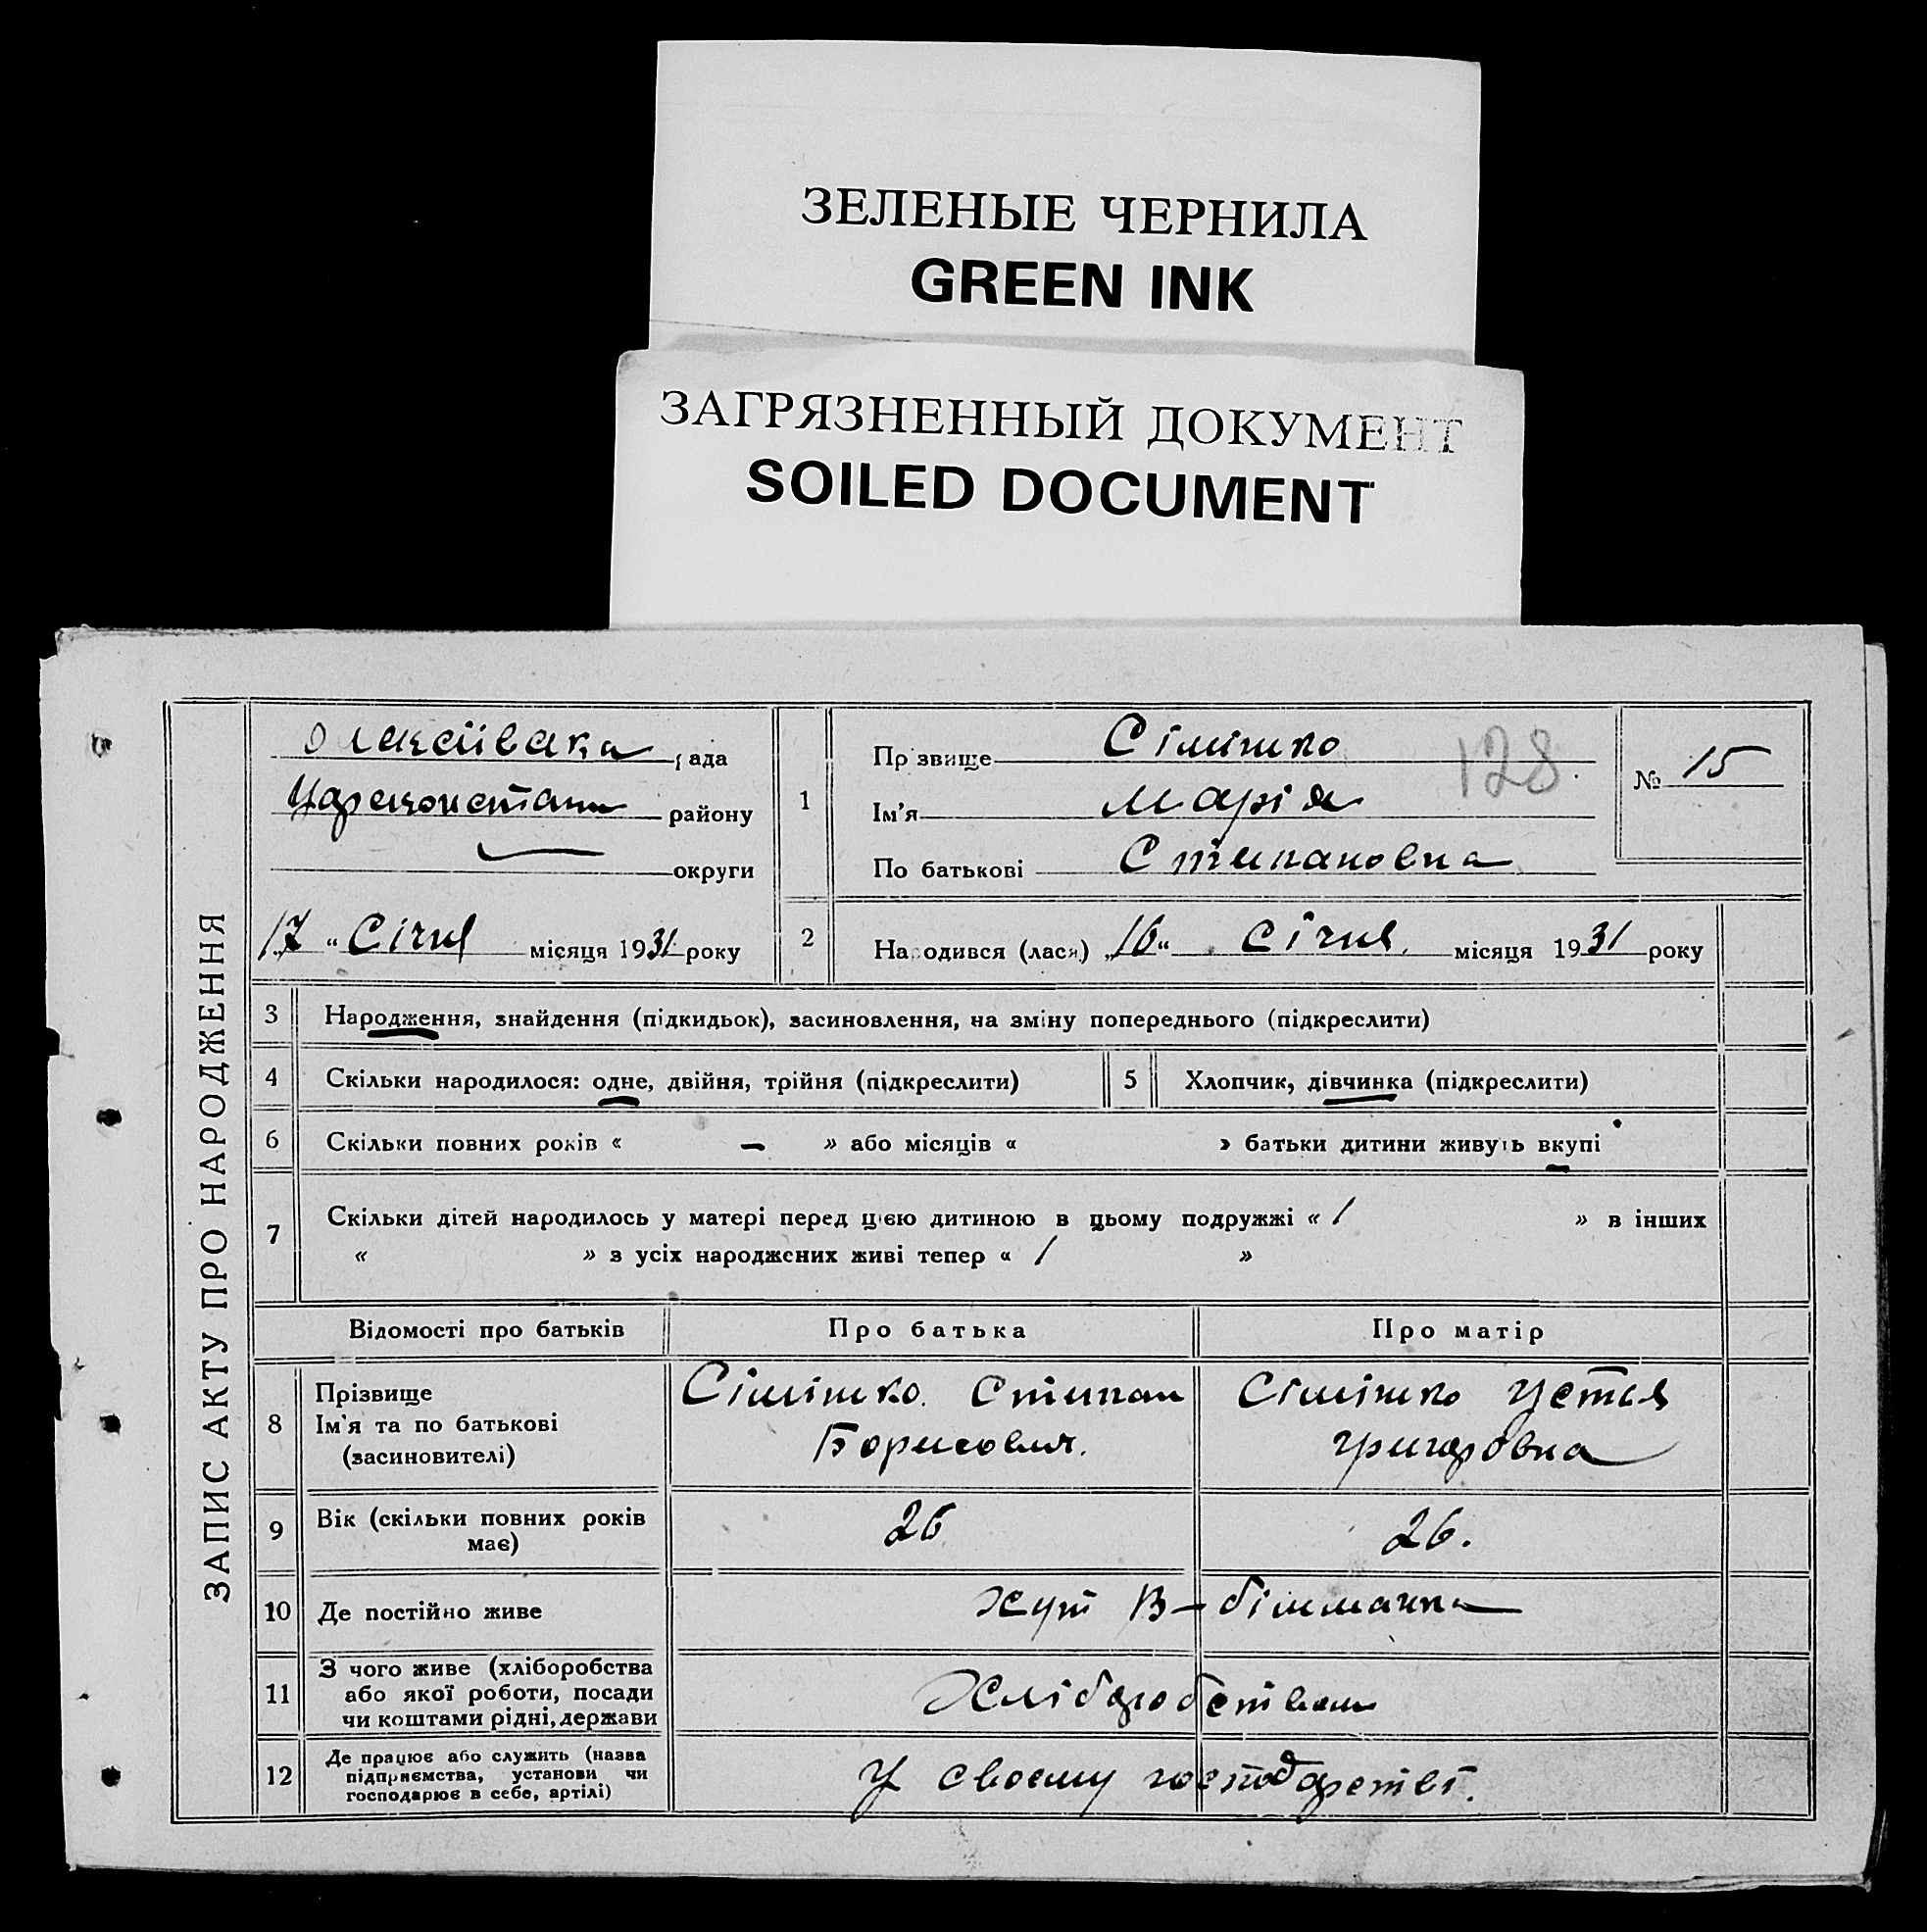 ЗЕЛЕНЫЕ ЧЕРНИЛА
GREEN INK
ЗАГРЯЗНЕННЫЙ ДОКУМЕНТ
SOILED DOCUMENT
ЗАПИС АКТУ ПРО НАРОДЖЕННЯ
рада
району
округи
17 " Січня місяця 1931 року
1
Прізвище Сімішко
Ім'я Марія
По батькові Степановна
128
№ 15
2
Народився (лася) „16" Січня місяця 1931 року
3 Народження, знайдення (підкидьок), засиновлення, на зміну попереднього (підкреслити)
4 Скільки народилося: одне, двійня, трійня (підкреслити) 5 Хлопчик, дівчинка (підкреслити)
6 Скільки повних років « — » або місяців « » батьки дитини живуть вкупі
7 Скільки дітей народилось у матері перед цією дитиною в цьому подружжі « 1 » в інших
« » з усіх народжених живі тепер « 1 »
Відомості про батьків Про батька Про матір
8 Прізвище
Ім'я та по батькові
(засиновителі)
Сімішко Степан
Борисович.
Сімішко Устя
Григоровна
9 Вік (скільки повних років
має)
26 26.
10 Де постійно живе хут В-
11 З чого живе (хліборобства
або якої роботи, посади
чи коштами рідні, держави
Хліборобством
12 Де працює або служить (назва
підприємства, установи чи
господарює в себе, артілі)
У своєму господарстві.